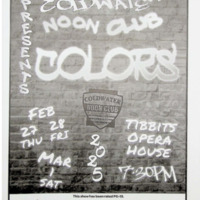 PRESENTS
COLDWATER
NOON CLUB
COLORS
COLDWATER
NOON CLUB
FEB
27 28
THU FRI
MAR
1
SAT.
2025
TIBBITS
OPERA
HOUSE
7:30PM
This show has been rated PG-13.